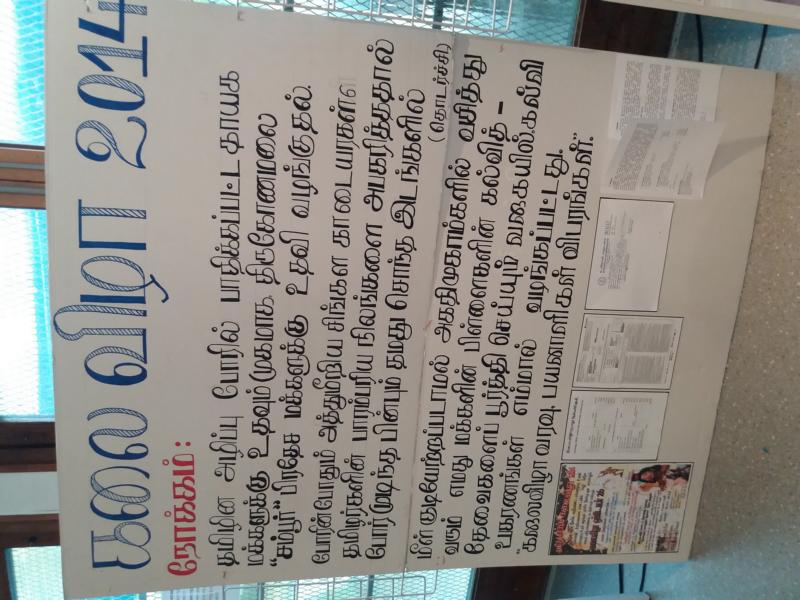 கலை விழா 2014
நோக்கம்:
தமிழின அழிப்பு போரில் பாதிக்கப்பட்ட தாயக
மக்களுக்கு உதவும்முகமாக திருகோணமலை
"சம்பூர்" பிரதேச மக்களுக்கு உதவி வழங்குதல்.
போரின்போதும் அத்துமீறிய சிங்கள காடையர்கள்
தமிழர்களின் பாரம்பரிய நிலங்களை அபகரித்ததால்
போர்முடிந்த பின்பும் தமது சொந்த இடங்களில்
(தொடர்ச்சி)
மீள் குடியேற்றப்படாமல் அகதிமுகாம்களில் வசித்து
வரும் எமது மக்களின் பிள்ளைகளின் கல்வித் -
தேவைகளைப் பூர்த்தி செய்யும் வகையில், கல்வி
உபகரணங்கள் எம்மால் வழங்கப்பட்டது.
"கலைவிழா வரவு பயனாளிகள் விபரங்கள்."